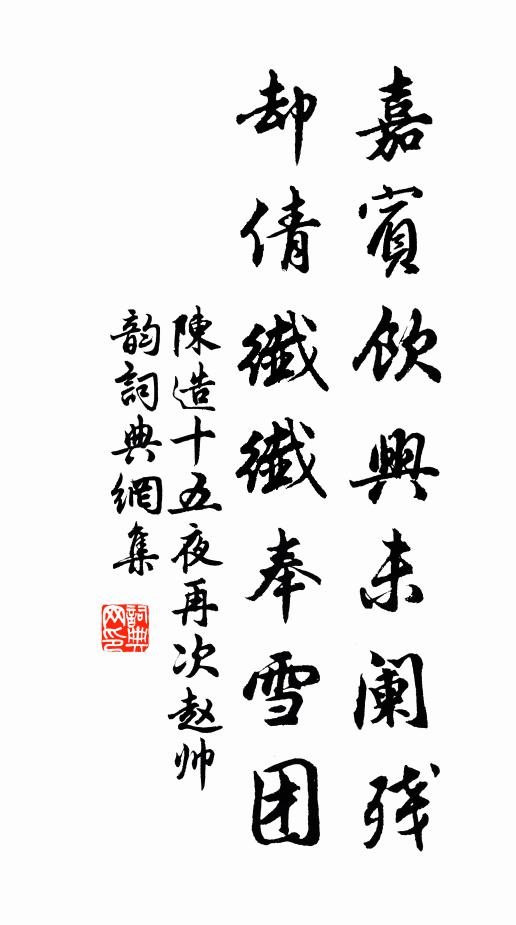 嘉賓飲興未阑残
却倩纖纖奉雪团
陳造十五夜再次赵帅
韵詞典網集
詞典网印